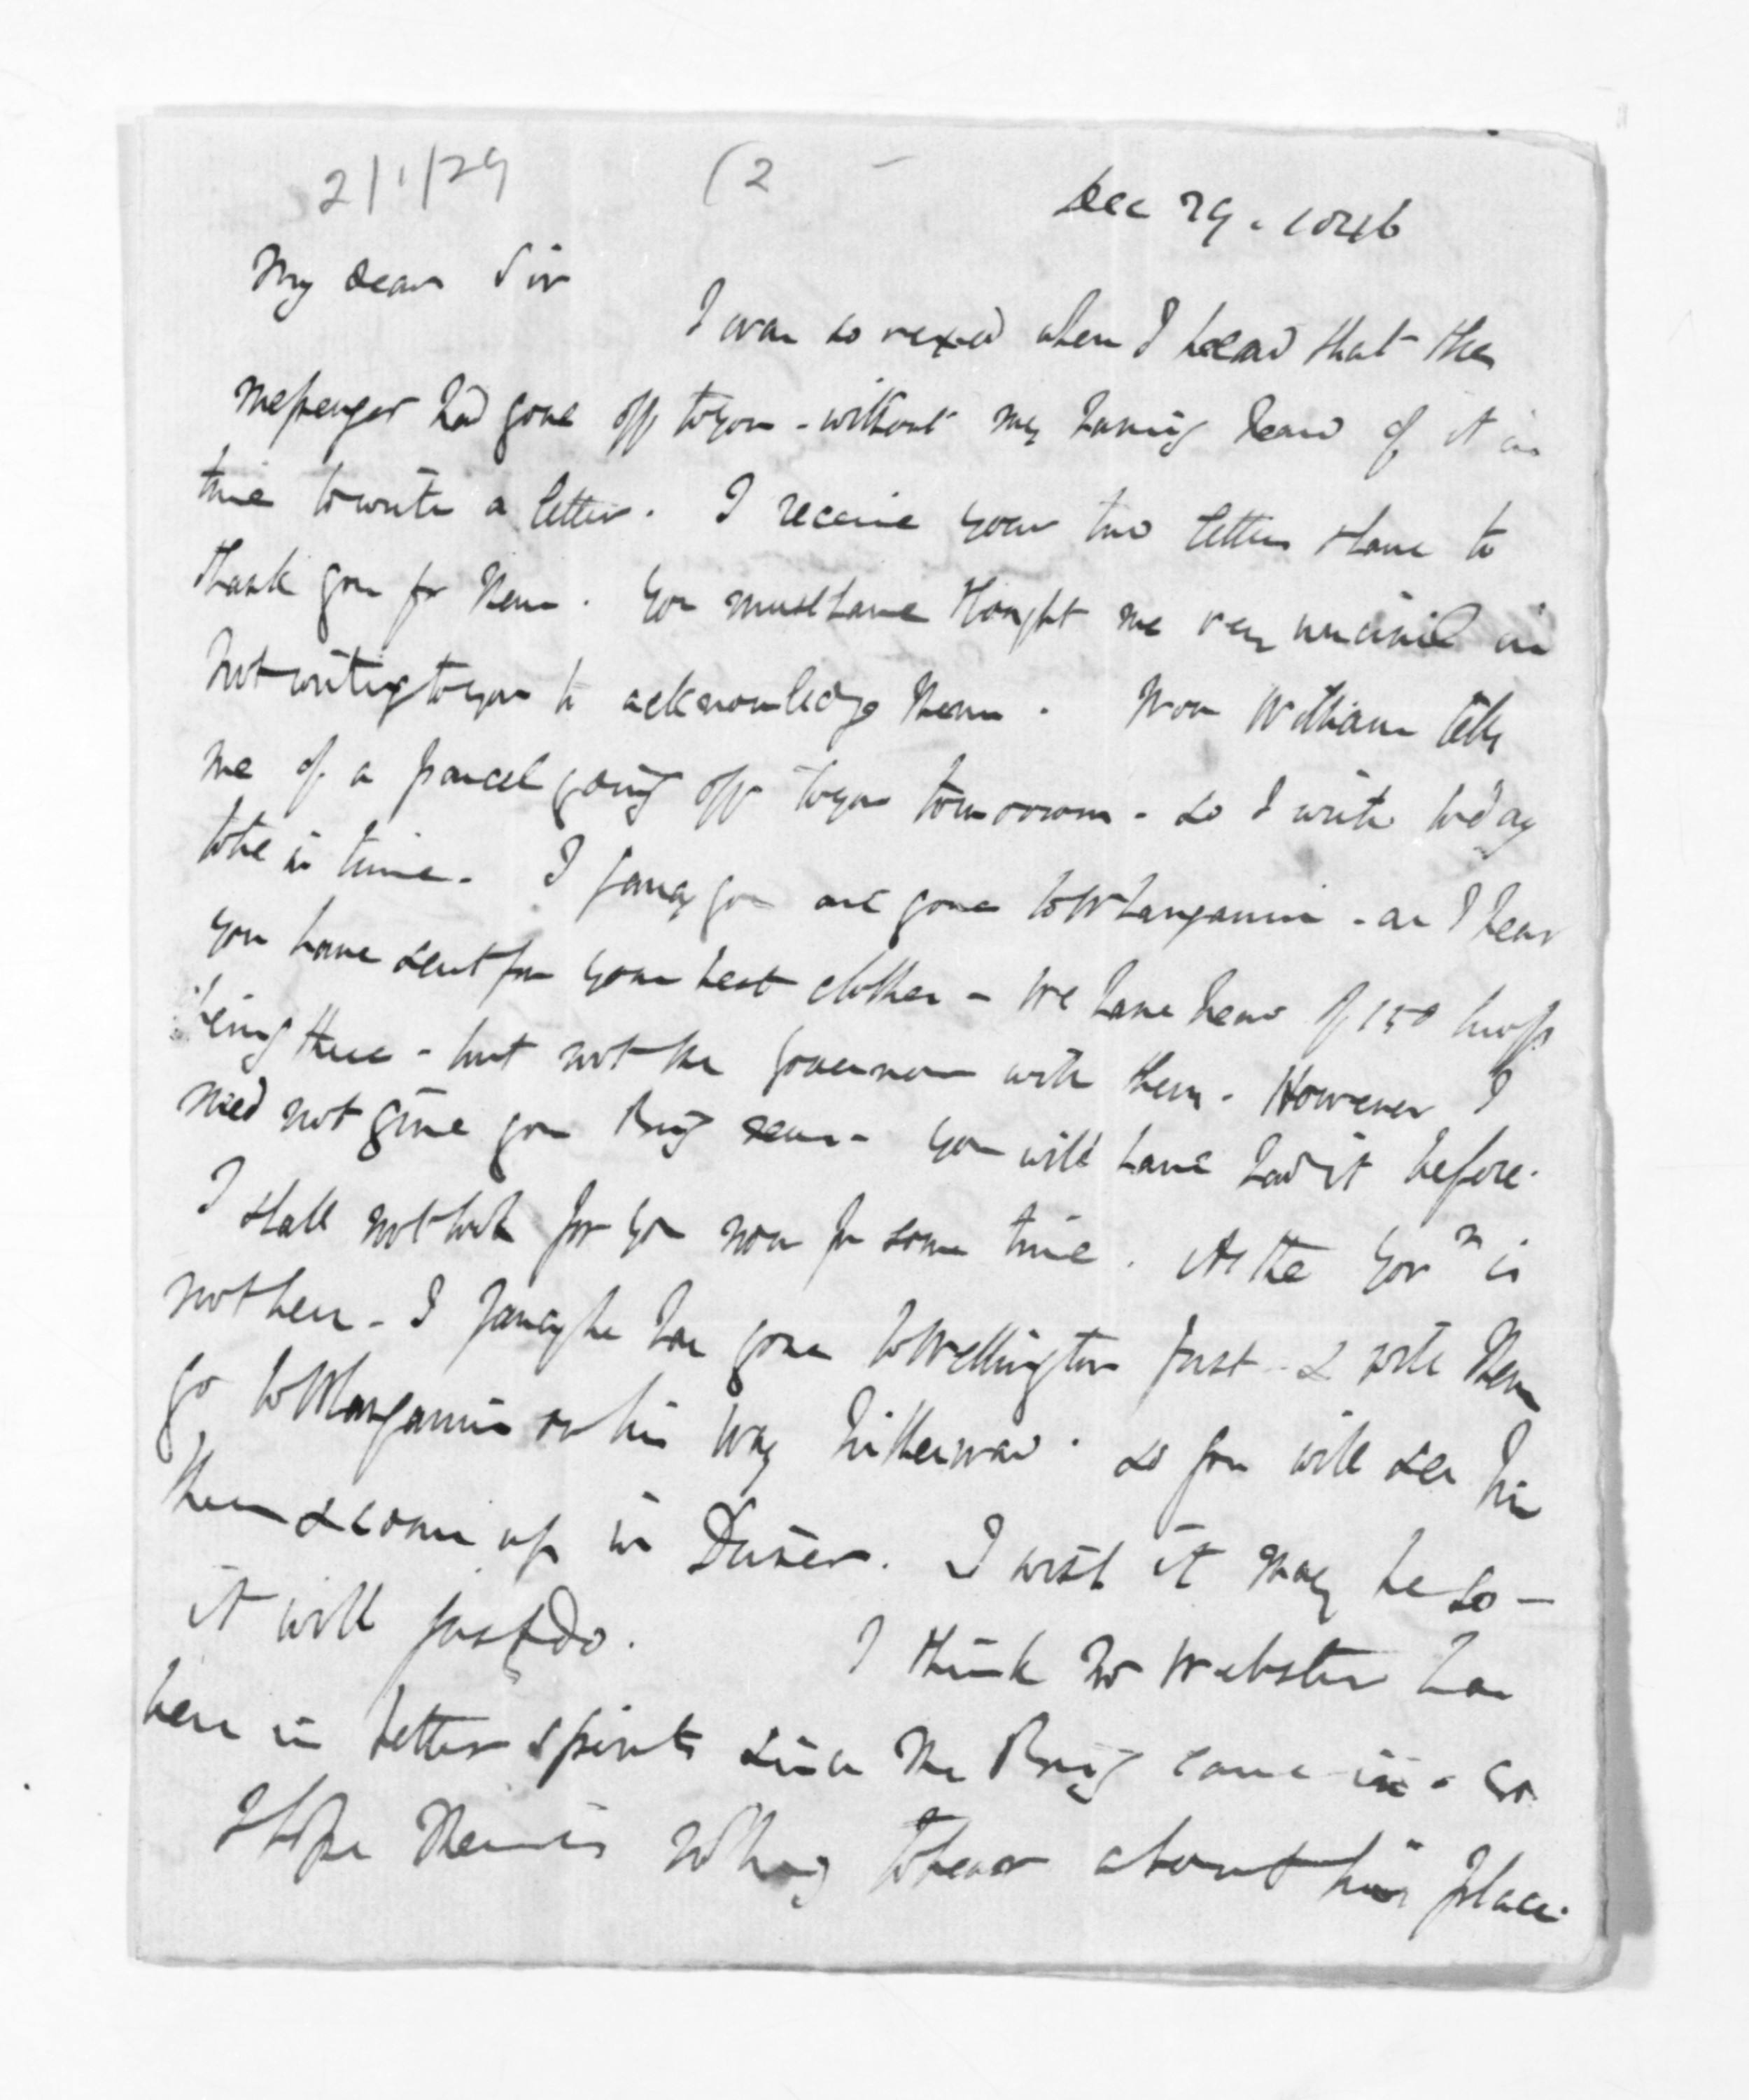 2/1/29 (2
Dec 29. 1846
My dear Sir
I was so vexed when I heard that the
messenger had gone off to you - without my having heard of it in
time to write a letter. I receive your two letters & have to
thank you for them. You must have thought me very uncivil in
not writing to you to acknowledge them. Now William tells
me of a parcel going off to you tomorrow - so I write today
to be in time. I fancy you are gone to Whanganui - as I hear
you have sent for your best clothes - We have heard of 150 troops
being there - but not the Governor with them. However I
need not give you Brig news - you will have had it before.
I shall not look for you now for some time. As the Govr is
not here - I fancy he has gone to Wellington first - & will then
go to Whanganui on his way hitherward. So you will see him
there & come up in Driver. I wish it may be so -
it will just do. I think Mr Webster has
been in better spirits since the Brig came in - so
I hope there is nothing to hear about his place.